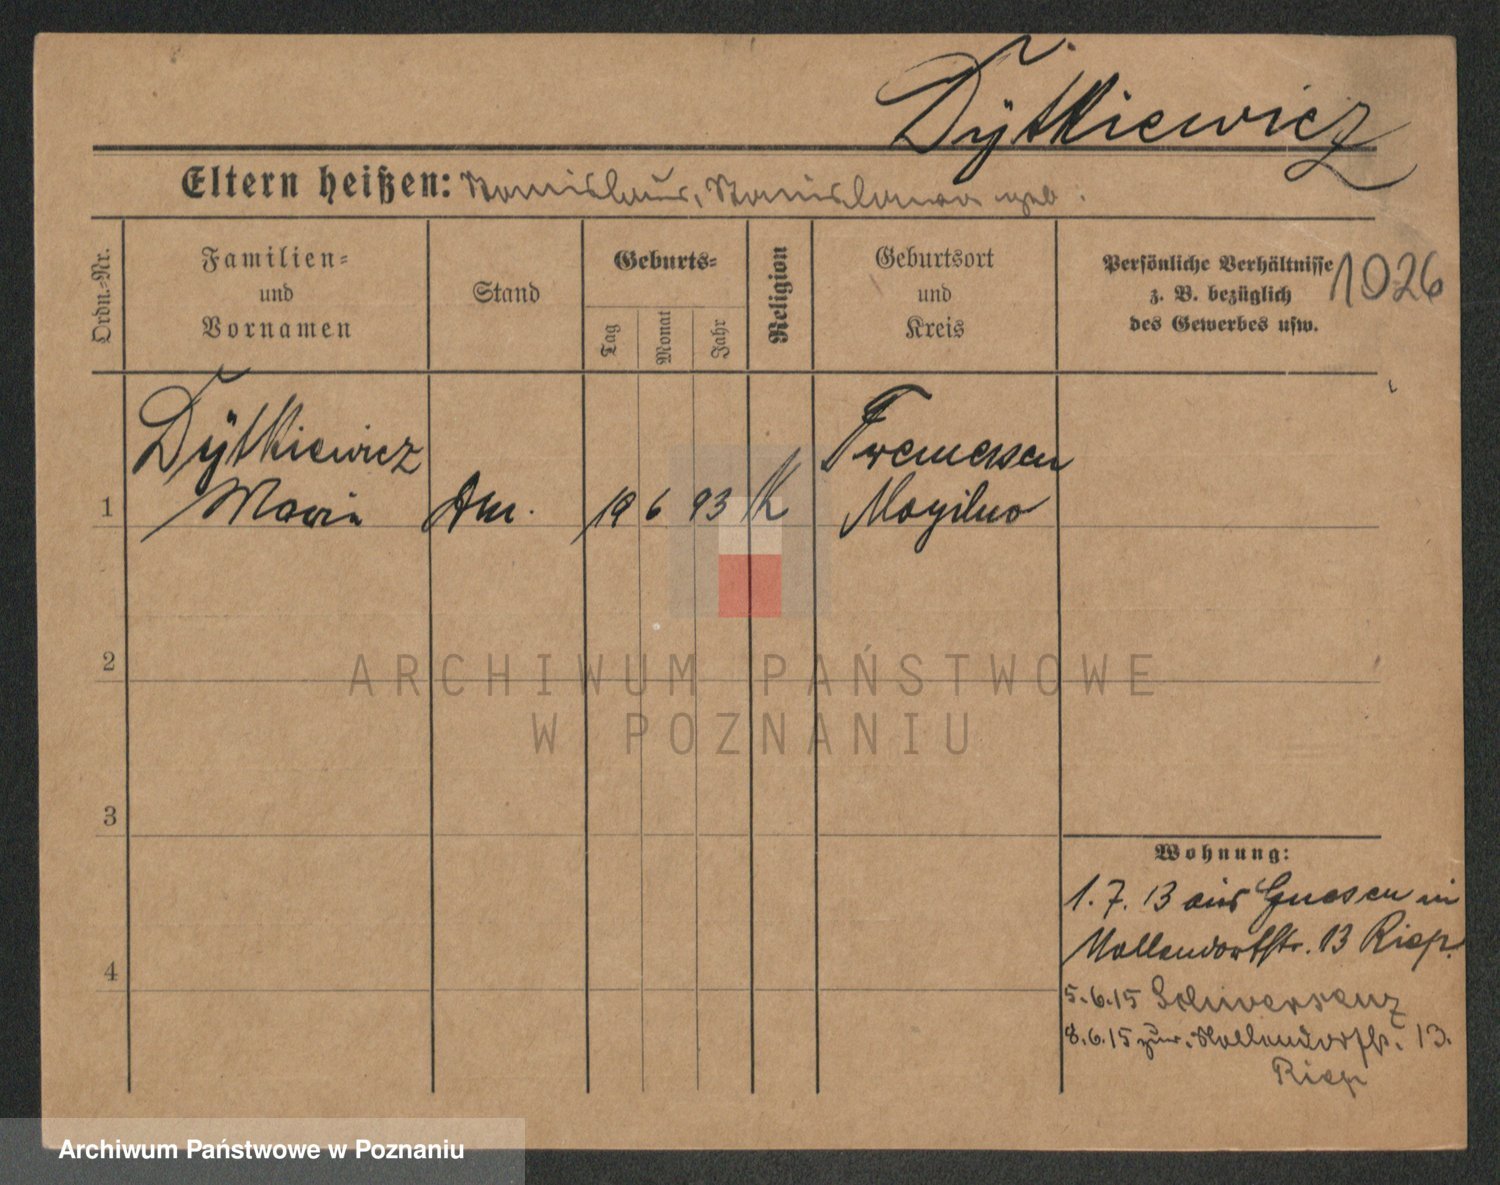 Dÿtkiewicz
Eltern heißen: Stanislaus, Stanislawa geb.
Ordn.-Nr.
Familien-
und
Vornamen
Stand
Geburts-
Tag
Monat
Jahr
Religion
Geburtsort
und
Kreis
Persönliche Verhältnisse
z. B. bezüglich
des Gewerbes usw.
1026
Dÿtkiewicz
Tremessen
1 Maria 19 6 93 K Mogilno
2
3
4
Wohnung:
1. 7. 13 aus Gnesen in
Nollendorfstr. 13
5.6.15 Schwersenz
8.6.15 zur. Nollendorfstr. 13.
ARCHIWUM PAŃSTWOWE
W POZNANIU
Archiwum Państwowe w Poznaniu